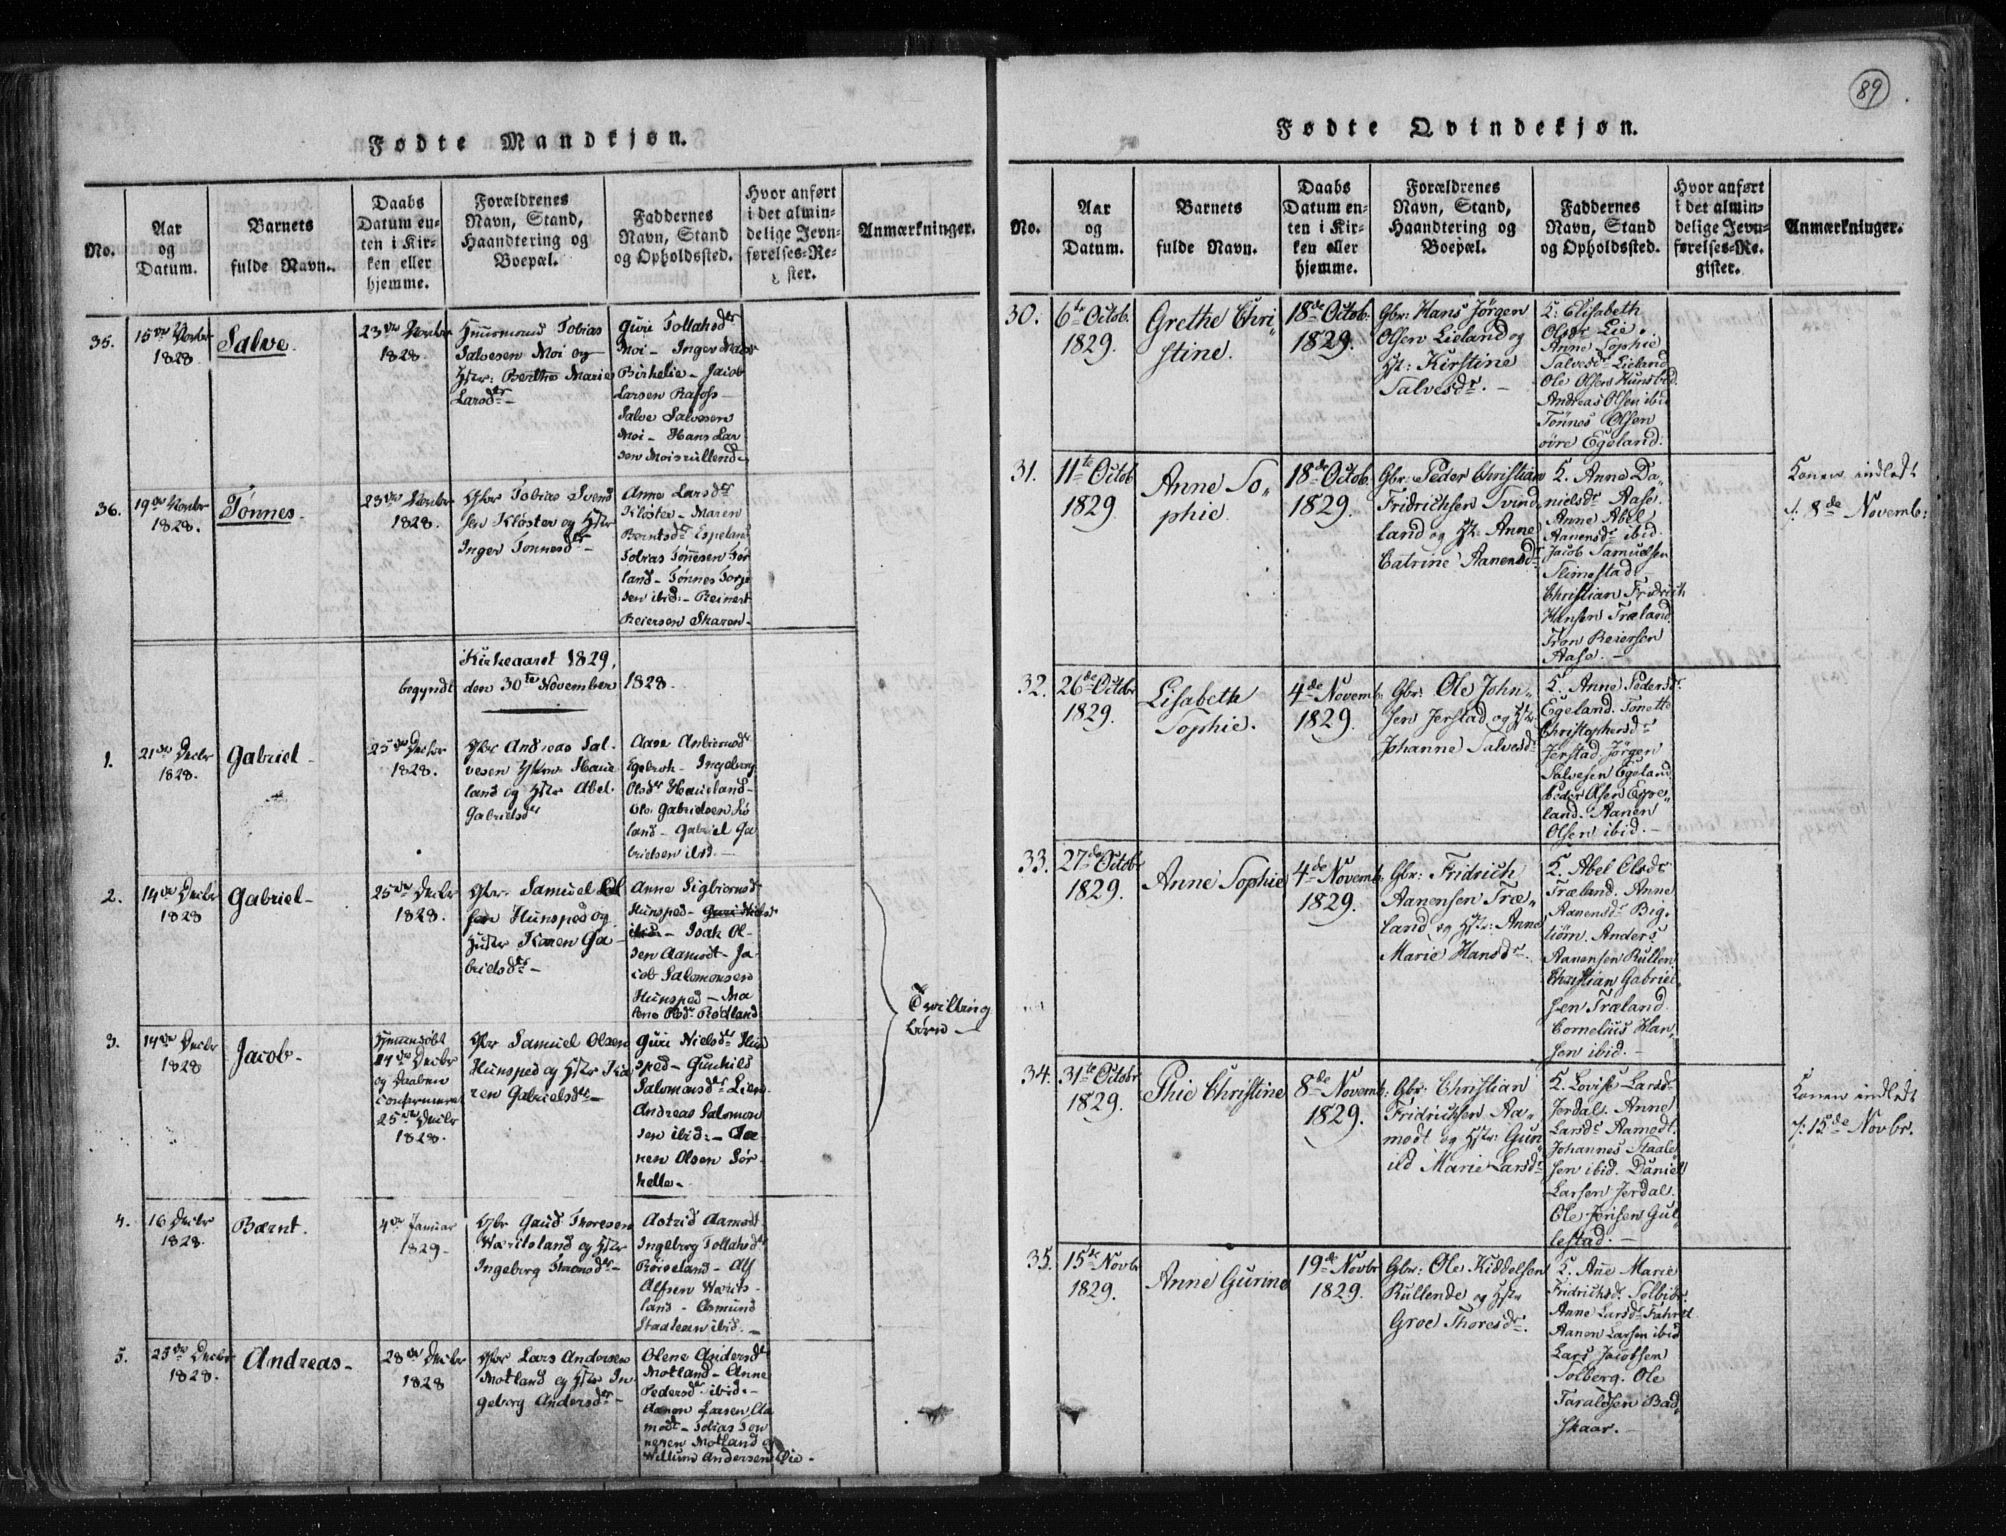 89
Fødte Mandkjøn.
No.
Aar
og
Datum.
Barnets
fulde Navn.
Daabs
Datum en-
ten i Kir-
ken eller
hjemme.
Forældrenes
Navn, Stand,
Haandtering og
Boepæl.
Faddernes
Navn, Stand
og Opholdssted.
Hvor anført
i det almin-
delige Jevn-
førelses-Re-
gister.
Anmærkninger.
35.
15de Novbr
1828.
Salve.
23de Novbr
1828.
Tobias
Salvesen Moi og
Hstr: Berthe Marie
Larsdr –
Guri Tollahsdr
Moi – Inger
Birkelie – Jacob
Larsen Rafoss –
Salve Salvesen
Moi – Hans Lar
sen Moisrullend –
36.
19de Novbr
1828.
Tønnes.
23de Novbr
1828.
Gbr Tobias Svend
sen Kloster og Hstr
Inger Tønnesdr –
Anne Larsdr
Kloster – Maren
Berntsdr Espeland
Tobias Tønnesen Tør
land – Tønnes Torje
sen ibid: – Reinert
Reiersen Skaren –
Kirkeaaret 1829,
begyndt den 30te November 1828.
1.
21de Decbr
1828.
Gabriel –
25de Decbr
1828.
Gbr Andreas Sal
vesen Haue
land og Hstr Abel
Gabrielsdr
Aase
Ingeborg
Olsdr Haueland –
Ole Gabrielsen
land – Gabriel Ga
brielsen ibid. –
2.
14de Decbr
1828
Gabriel –
25de Decbr
1828.
Gbr. Samuel Ol
sen Hunsped og
Hustr Karen Ga
brielsdr –
Anne Sigbiørnsdr
Hunsped – Guri Nielsdr
ibid – Isak Ol-
sen Aamodt – Ja-
cob Salomonsen
Hunsped – Ma
rene Olsdr Rødland
Tvilling
børn –
3.
14de Decbr
1828
Jacob –
Hjemmedøbt
14de Decbr
og Daaben
confirmeret
25de Decbr
1828.
Gbr Samuel Olsen
Hunsped og Hstr Ka
ren Gabrielsdr –
Guri Nielsdr Hun
sped – Gunhild
Salomonsdr Lien
Andreas Salomon
sen ibid: – Aa
nen Olsen Sør-
helle –
4.
16 Decbr
1828.
Bærnt.
4de Januar
1829 –
Gbr Gaud Thoresen
Wæritsland og Hstr
Ingeborg
Astrid Aamodt
Ingeborg Tollahsdr
Røiseland – Alf
Alfsen Wærits-
land – Asmund
ibid. –
5.
23de Decbr
1828.
Andreas –
28de Decbr
1828
Gbr Lars Andersen
Motland og Hstr In
geborg Andersdr –
Olene Andersdr
Motland – Anne
Pedersdr ibid: –
Aanen Larsen Aa
modt – Tobias Tøn
nesen Motland og
Willum Andersen Øie –
Fødte Qvindekjøn.
No.
Aar
og
Datum.
Barnets
fulde Navn.
Daabs
Datum en-
ten i Kir-
ken eller
hjemme.
Forældrenes
Navn, Stand,
Haandtering og
Boepæl.
Faddernes
Navn, Stand
og Opholdssted.
Hvor anført
i det almin-
delige Jevn-
førelses-Re-
gister.
Anmærkninger.
30.
6te Octob.
1829.
Grethe Chri„
stine.
18de Octob.
1829.
Gbr: Hans Jörgen
Olsen Lieland og
Hst: Kirstine
Salvesdr. –
K. Elisabeth
Olsdr Lie.
Anne Sophie
Salvesdr Lieland
Ole Olsen Hunsbed.
Andreas Olsen ibid
Tønnes Olsen
øvre Egeland.
31.
11te Octob
1829
Anne So„
phie.
18de Octob.
1829.
Gbr: Peder Christian
Fridrichsen Tvind„
land og Hst: Anne
Catrine Aanensdr
K. Anne Da„
nielsdr Aase.
Anne Abel
Aanensdr ibid.
Jacob Samuelsen
Slimestad –
Christian Fridrich
Hansen Træland
Tron Reiersen
Aase. –
Konen indledt
/: 8de Novemb:
32.
26de Octobr
1829.
Lisabeth
Sophie.
4de Novemb.
1829.
Gbr: Ole John„
sen Jerstad og Hstr
Johanne Salvesdr
K. Anne Pedersdr
Egeland. Tonette
Christophersdr
Jerstad. Jörgen
Salvesen Egeland.
Peder Olsen Espes„
land. Aanen
Olsen ibid. –
33.
27de Octobr
1829.
Anne Sophie
4de Novemb.
1829.
Gbr: Fridrich
Aanensen Træ„
land og Hstr: Anne
Marie Hansdr.
K. Abel Olsdr
Træland. Anne
Aanensdr Big„
tiørn. Anders
Aanensen Rullen
Christian Gabriel„
sen Træland
Cornelius Han„
sen ibid. –
34.
31te Octobr
1829.
Thie Christine
8de Novemb.
1829.
Gbr: Christian
Fridrichsen Aa„
modt og Hstr: Gun„
ild Marie Larsdr
K. Lovise Larsdr
Jerdal. Anne
Larsdr Aamodt.
Johannes Staale„
sen ibid. Daniel
Larsen Jerdal.
Ole Jensen Gul„
lestad. –
Konen indledt
/: 15de Novbr.
35.
15de Novbr
1829.
Anne Gurine
19de Novbr
1829.
Gbr: Ole Kiddelsen
Rullende og Hstr
Groe Thoresdr.
K. Añe Marie
Fridrichsdr
Anne Larsdr
Aanen Larsen ibid
Lars Jacobsen
Solberg. Ole
Taraldsen Bad„
skaar. –